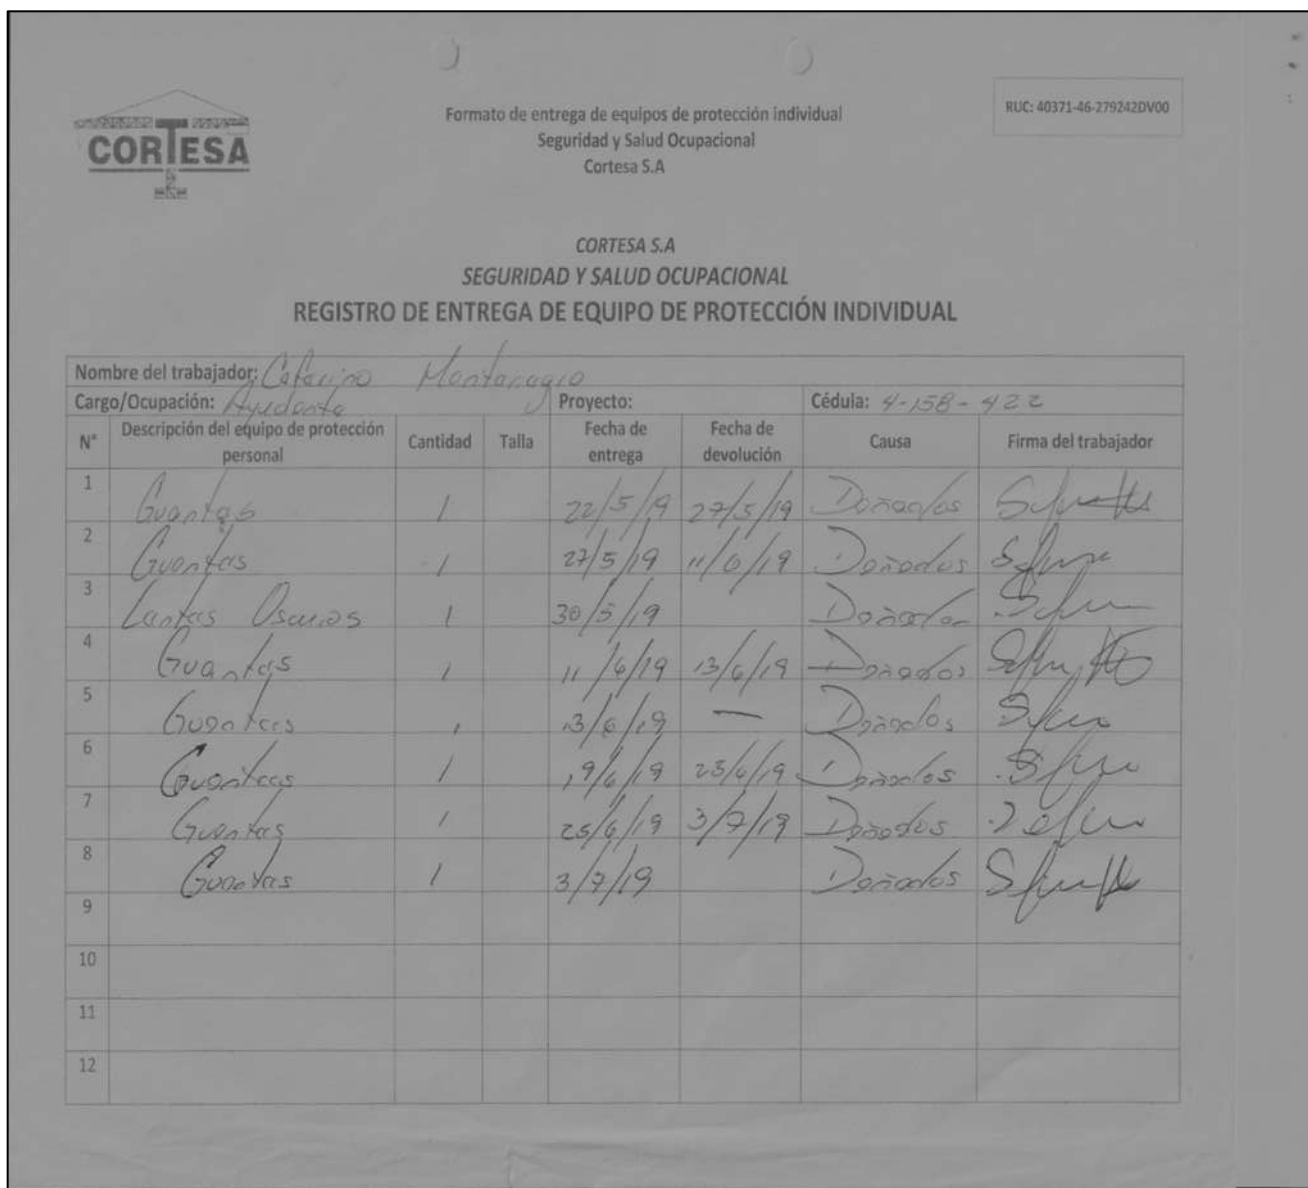 CORTESA
Formato de entrega de equipos de protección individual
Seguridad y Salud Ocupacional
Cortesa S.A
RUC: 40371-46-279242DV00
CORTESA S.A
SEGURIDAD Y SALUD OCUPACIONAL
REGISTRO DE ENTREGA DE EQUIPO DE PROTECCIÓN INDIVIDUAL
Nombre del trabajador: Ceferino
Cargo/Ocupación: Ayudante Proyecto: Cédula: 4-158-422
N° Descripción del equipo de protección personal Cantidad Talla Fecha de entrega Fecha de devolución Causa Firma del trabajador
1 Guantes 1 22/5/19 27/5/19 Dañados
2 Guantes 1 27/5/19 11/6/19 Dañados
3 Lentes Oscuros 1 30/5/19 Dañados
4 Guantes 1 11/6/19 13/6/19 Dañados
5 Guantes 1 13/6/19 — Dañados
6 Guantes 1 19/6/19 25/6/19 Dañados
7 Guantes 1 25/6/19 3/7/19 Dañados
8 Guantes 1 3/7/19 Dañados
9
10
11
12